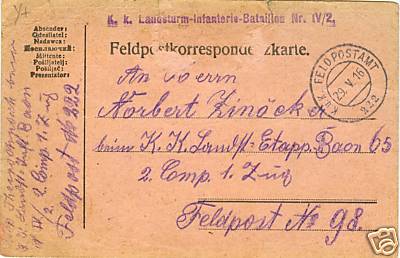 K. k. Landsturm-Infanterie-Bataillon Nr. IV/2.
Absender:
Odesílatel:
Nadawca:
Посилаючий:
Mittente:
Pošiljatelj:
Pošilač:
Presentator:
Feldpostkorrespondenzkarte.
K.u.K. FELDPOSTAMT
29. V. 16
222
An Herrn
Norbert Zinöcker
beim K. K. Landst. Etapp. Baon 65
2. Comp. 1. Zug
Feldpost No 98.
Baon
N IV/2, 2. Comp. 1. Zug
Feldpost No 222
ebay